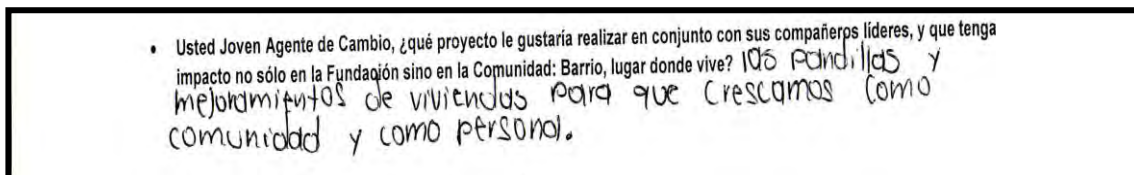 • Usted Joven Agente de Cambio, ¿qué proyecto le gustaría realizar en conjunto con sus compañeros líderes, y que tenga
impacto no sólo en la Fundación sino en la Comunidad: Barrio, lugar donde vive? las pandillas y
mejoramientos de viviendas para que crescamos como
comunidad y como personal.